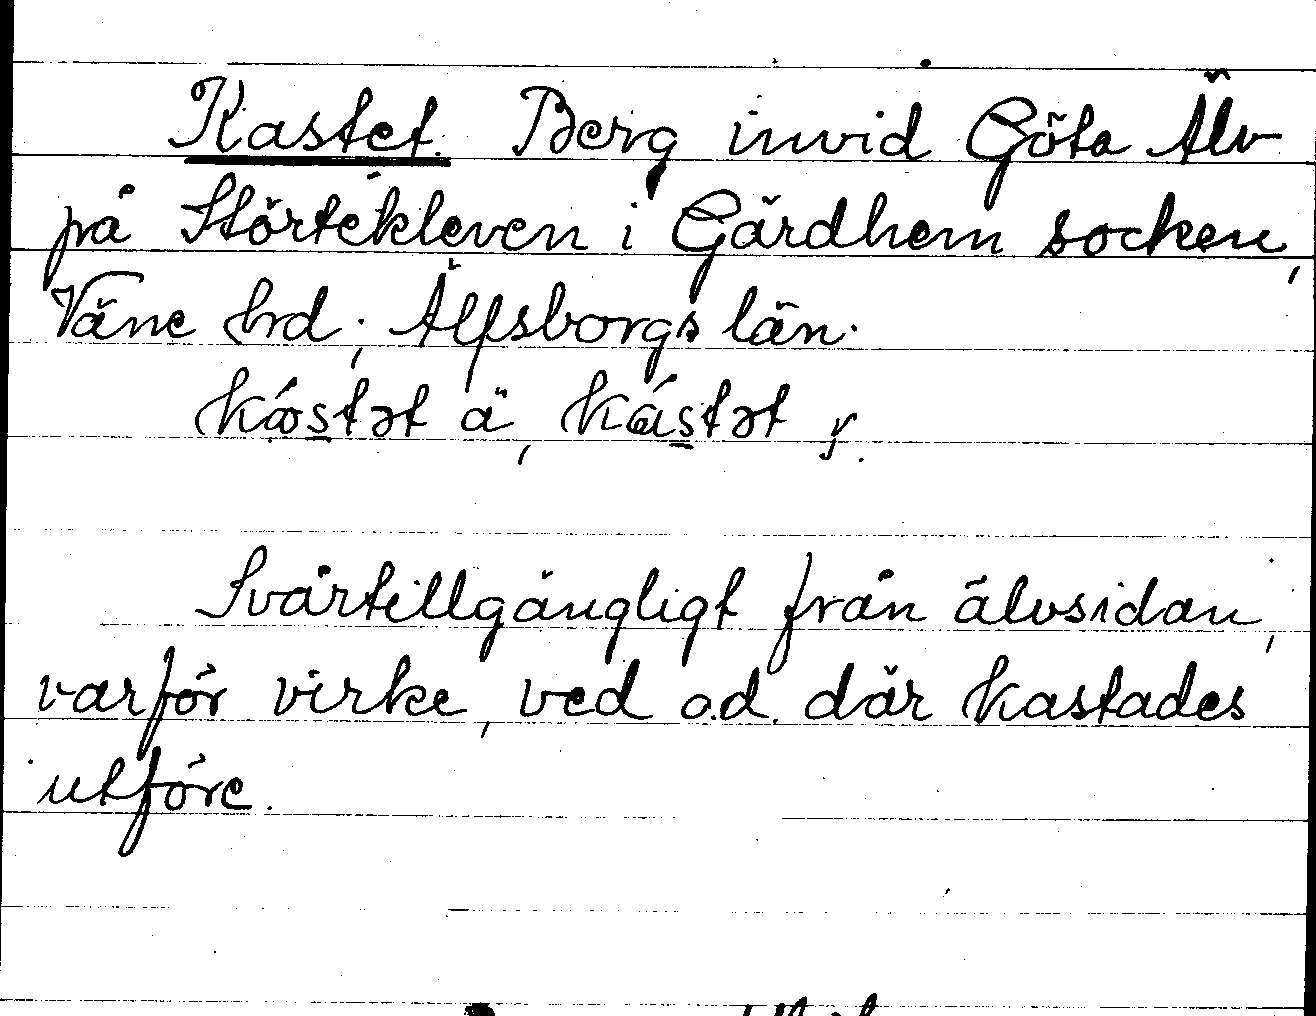 Kastet. Berg invid Göta Älv
på Störtekleven i Gärdhem socken,
Väne hrd, Älfsborgs län.
kástət ä, kástət y.
Svårtillgängligt från älvsidan,
varför virke, ved o.d. där kastades
utföre.